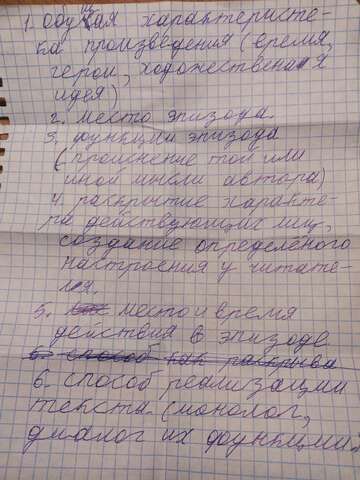 1. Общая характеристи-
ка произведения (время,
герои, художественная
идея)
2. место эпизода.
3. функции эпизода
(прояснение той или
иной мысли автора)
4. раскрытие характе-
ра действующих лиц,
создание определеного
настроения у читате-
ля.
5. место и время
действия в эпизоде
6. способ как раскрыва
6. способ реализации
текста. (монолог,
диалог их функции).